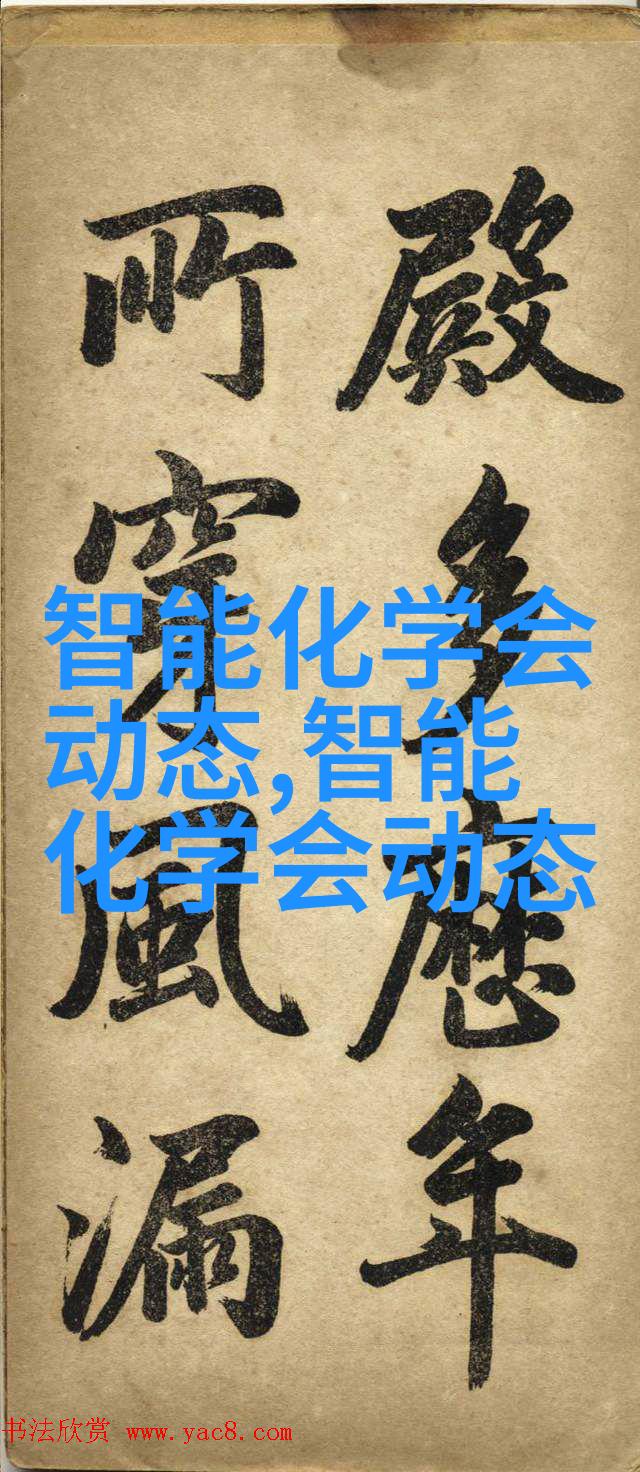 殿多歷年
所穿風漏
智能化学会
动态,智能
化学会动态
书法欣赏 www.yac8.com